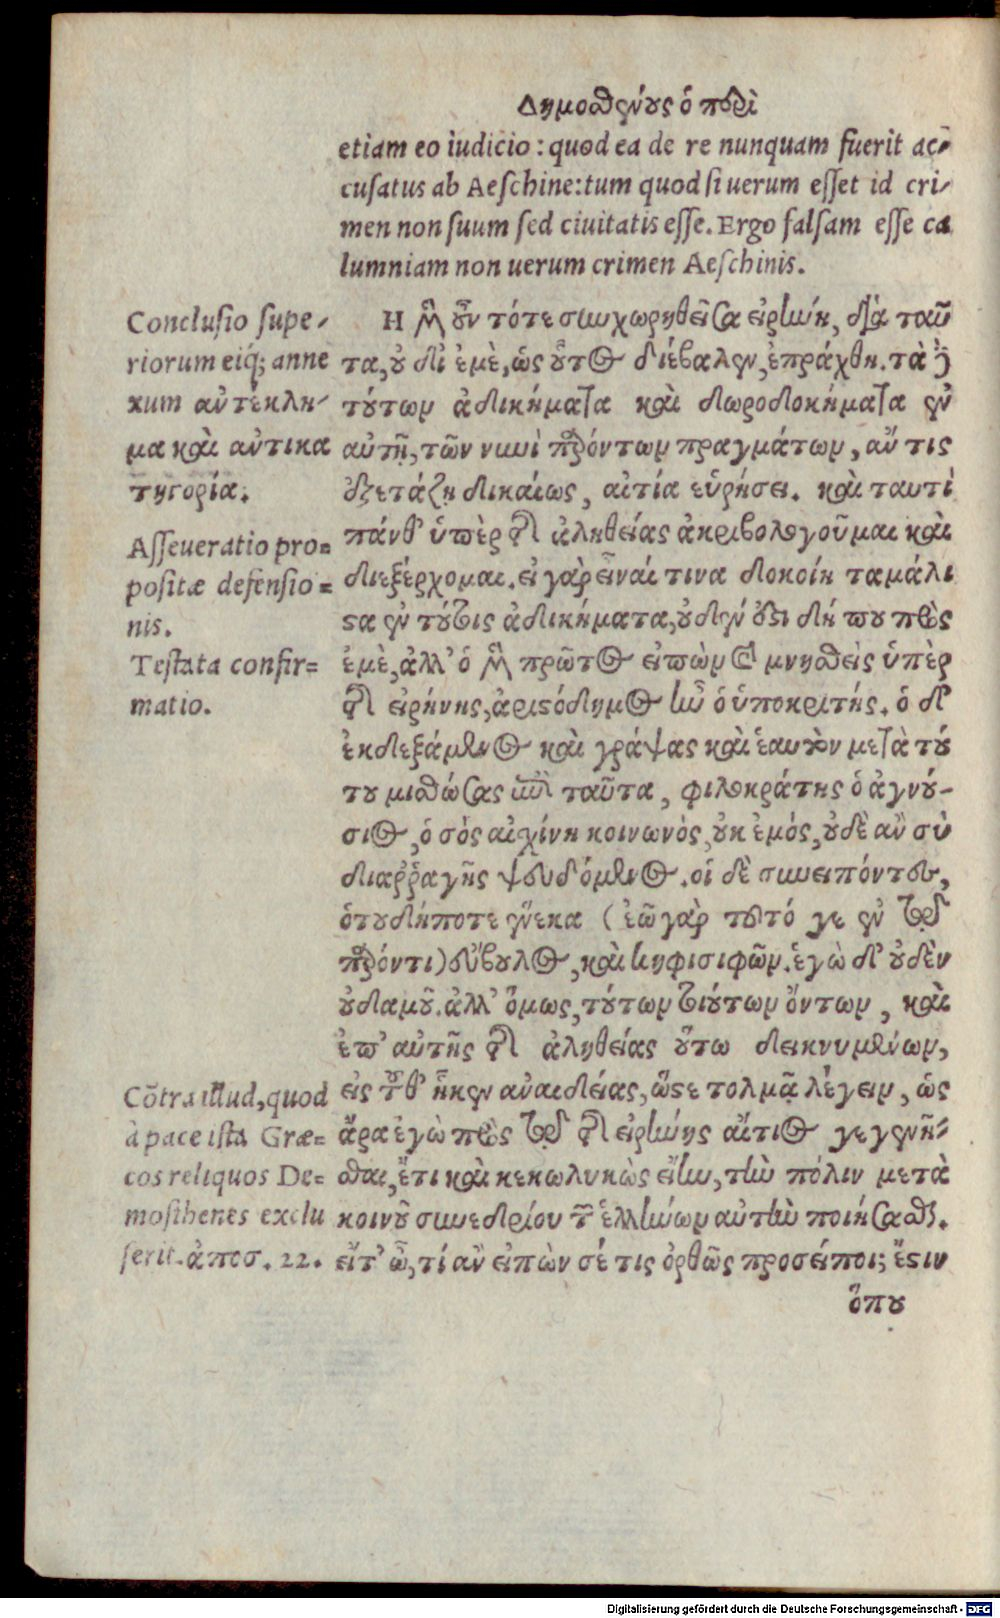 Δημοσθένους ὁ περὶ
etiam eo iudicio: quod ea de re nunquam fuerit ac-
cusatus ab Aeschine: tum quod si uerum esset id cri-
men non suum sed ciuitatis esse. Ergo falsam esse ca
lumniam non uerum crimen Aeschinis.
Conclusio supe-
riorum eiq; anne
xum αὐτέκλη-
μα καὶ αὐτικα
τηγορία.
Asseueratio pro-
positæ defensio-
nis.
Testata confir-
matio.
Η μὲν οὖν τότε συγχωρηθεῖσα εἰρήνη, διὰ ταῦ
τα, οὐ δι' ἐμὲ, ὡς οὗτος διέβαλεν, ἐπράχθη. τὰ δὲ
τούτων ἀδικήματα καὶ δωροδοκήματα ἐν
αὐτῇ, τῶν νυνὶ παρόντων πραγμάτων, ἄν τις
ἐξετάζῃ δικαίως, αἰτία εὑρήσει. καὶ ταυτὶ
πάνθ' ὑπὲρ τῆς ἀληθείας ἀκριβολογοῦμαι καὶ
διεξέρχομαι. εἰ γὰρ εἶναί τινα δοκοίη ταμάλι
στα ἐν τούτοις ἀδικήματα, οὐδέν ἐστι δή που πρὸς
ἐμὲ, ἀλλ' ὁ μὲν πρῶτος εἰπὼν καὶ μνησθεὶς ὑπὲρ
τῆς εἰρήνης, ἀριστόδημος ἦν ὁ ὑποκριτής. ὁ δ'
ἐκδεξάμενος καὶ γράψας καὶ ἑαυτὸν μετὰ τού
του μισθώσας ἐπὶ ταῦτα, φιλοκράτης ὁ ἁγνού-
σιος, ὁ σὸς αἰσχίνη κοινωνὸς, οὐκ ἐμός, οὐδὲ ἂν σὺ
διαῤῥαγῇς ψευδόμενος. οἱ δὲ συνειπόντες,
ὁτουδήποτε ἕνεκα (ἐῶ γὰρ τοῦτό γε ἐν τῷ
παρόντι) εὔβουλος, καὶ κηφισιφῶν. ἐγὼ δ' οὐδὲν
οὐδαμοῦ. ἀλλ' ὅμως, τούτων τοιούτων ὄντων, καὶ
ἐπ' αὐτῆς τῆς ἀληθείας οὕτω δεικνυμένων,
Cõtra illud, quod
à pace ista Græ-
cos reliquos De-
mosthenes exclu
serit. ἀποσ. 22.
εἰς τοῦθ' ἧκεν ἀναιδείας, ὥστε τολμᾷ λέγειν, ὡς
ἄρα ἐγὼ πρὸς τῷ τῆς εἰρήνης αἴτιος γεγενῆ-
σθαι, ἔτι καὶ κεκωλυκὼς εἴην, τὴν πόλιν μετὰ
κοινοῦ συνεδρίου τῶν ἑλλήνων αὐτὴν ποιήσασθαι.
εἶτ' ὦ, τί ἂν εἰπὼν σέ τις ὀρθῶς προσείποι; ἔστιν
ὅπου
Digitalisierung gefördert durch die Deutsche Forschungsgemeinschaft - DFG